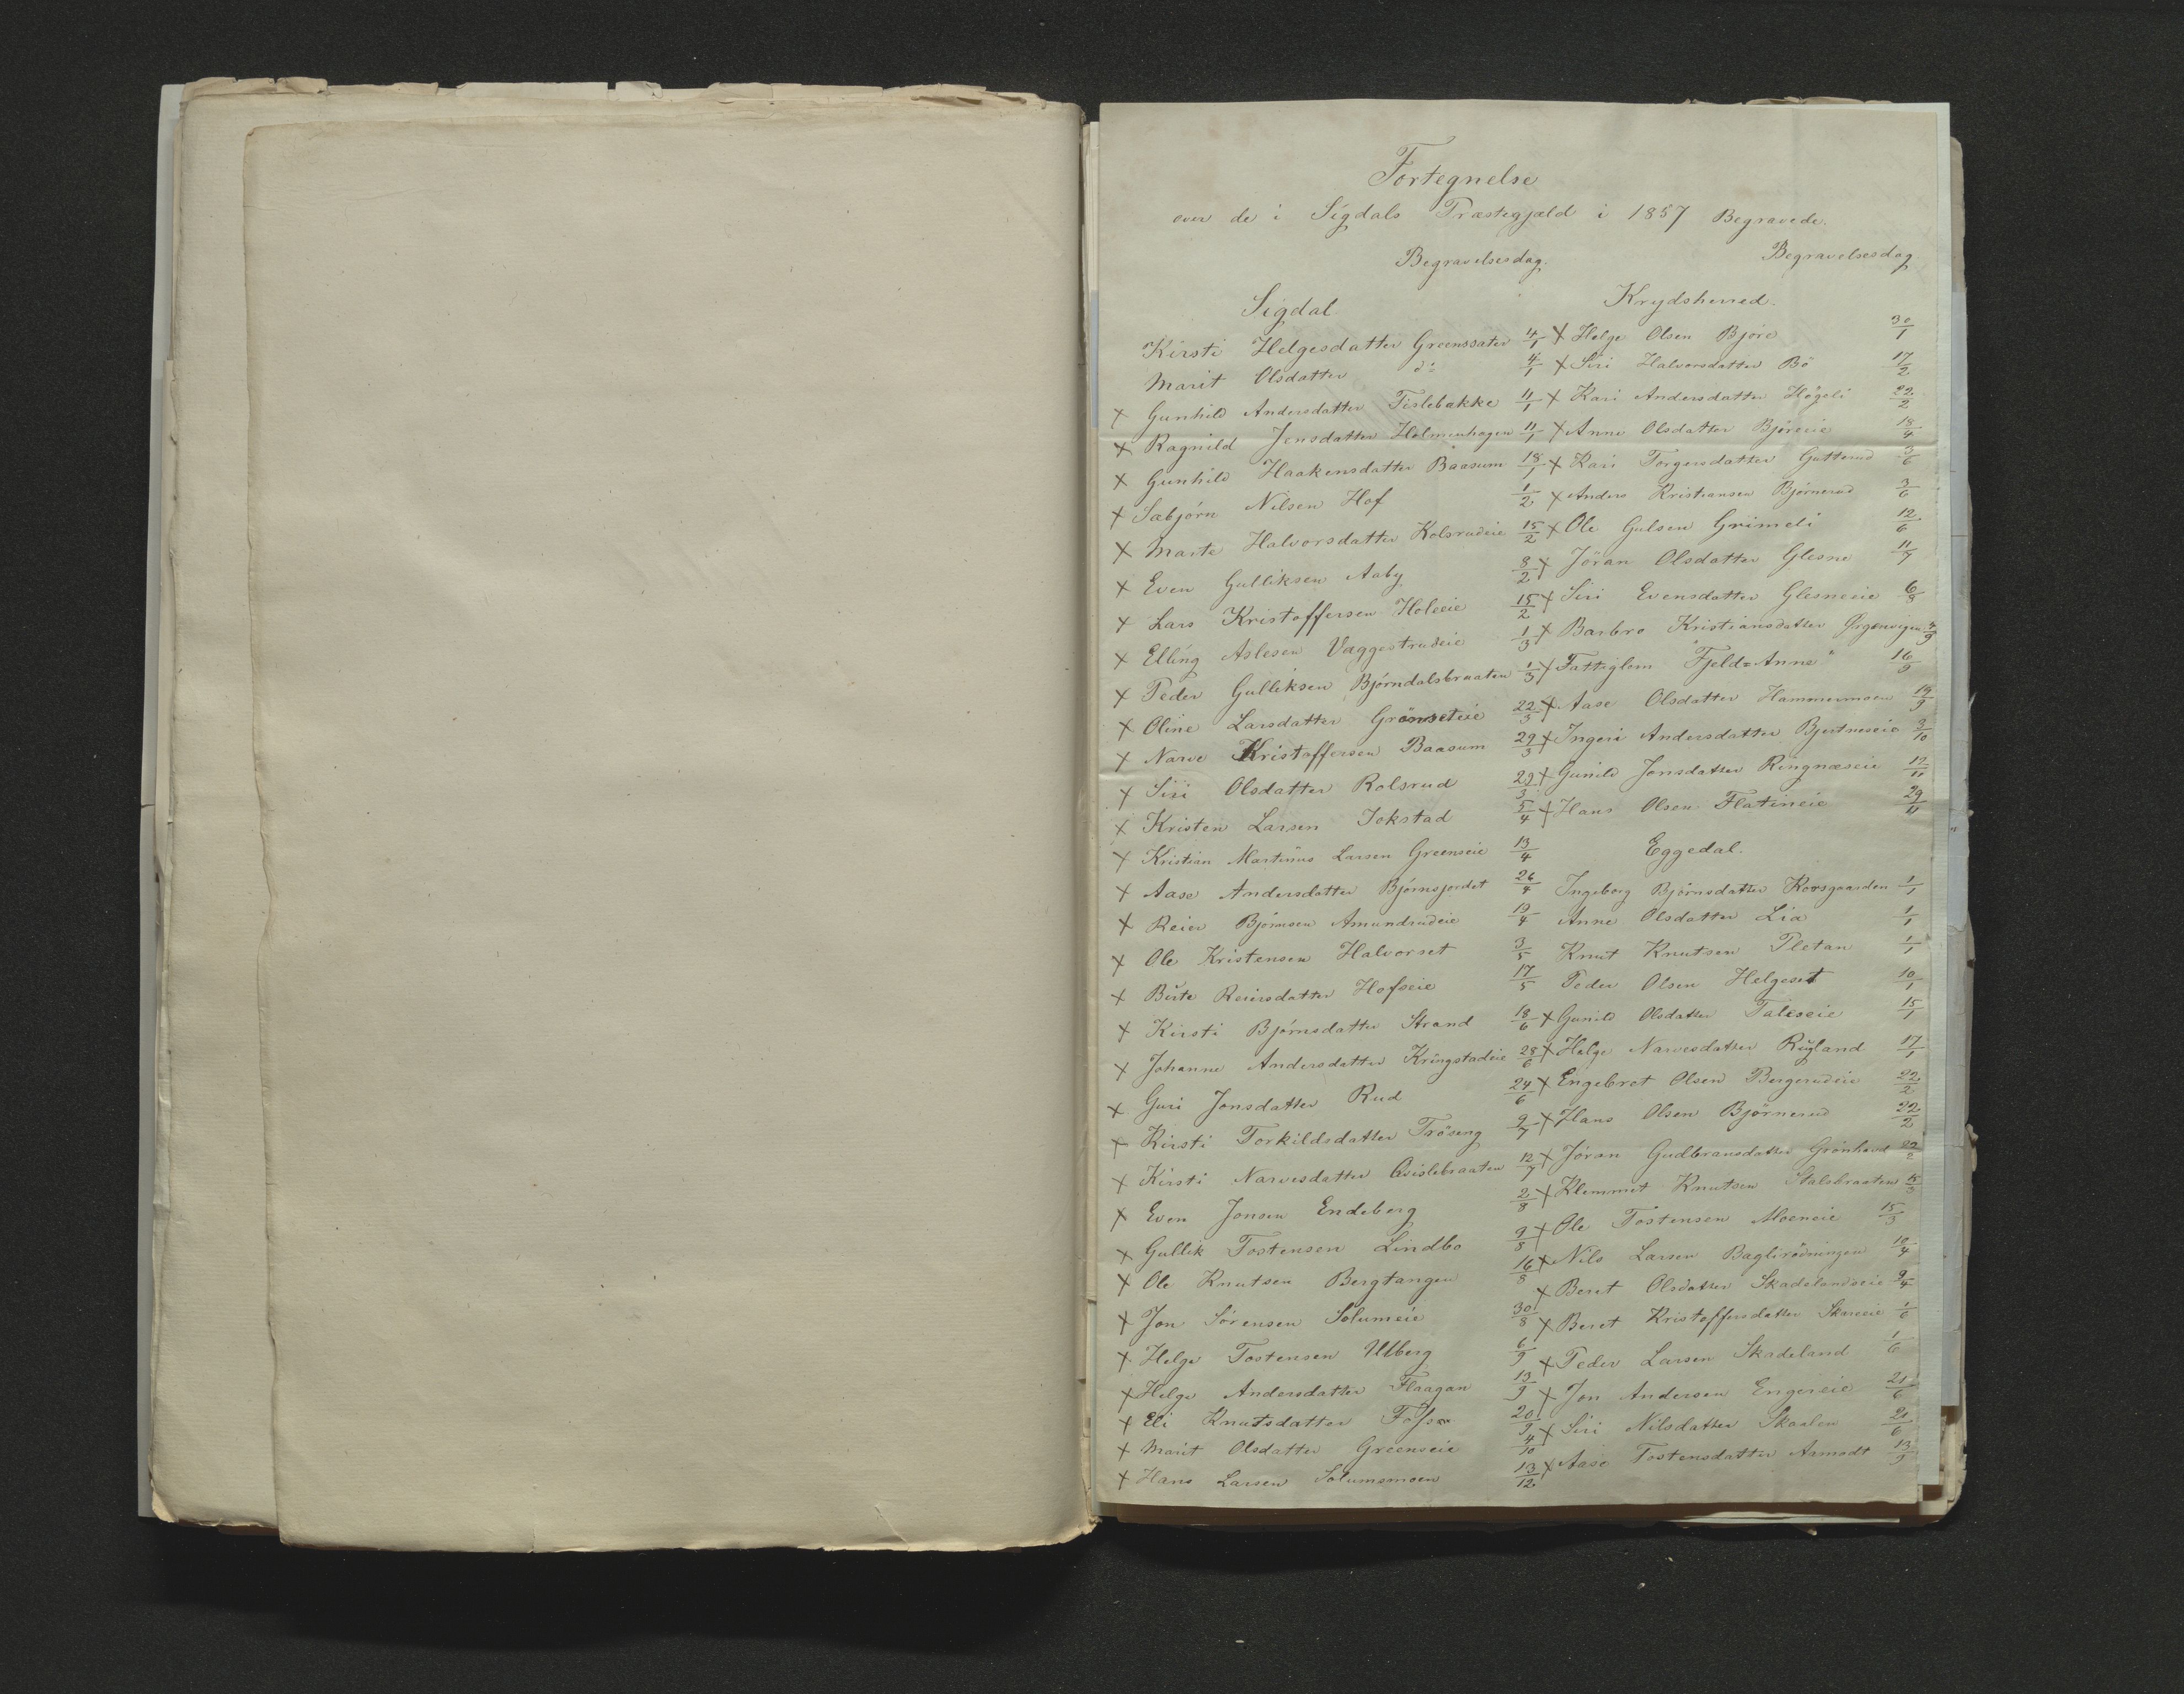 Fortegnelse
over de i Sigdals Præstegjæld i 1857 Begravede.
Begravelsesdag.
Sigdal
Kirsti Helgesdatter Greenssäter 4/1
Marit Olsdatter do 4/1
x Gunhild Andersdatter Tislebakke 11/1
x Ragnild Jensdatter Holmenhagen 11/1
x Gunhild Haakensdatter Baasum 18/1
x Sabjörn Nilsen Hof 1/2
x Marte Halvorsdatter Kolsrudeie 15/2
x Even Gulliksen Aaby 8/2
x Lars Kristoffersen Holeeie 15/2
x Elling Aslesen Vaggestrudeie 1/3
x Peder Gulliksen Björndalsbraaten 1/3
x Oline Larsdatter Grönseteie 22/3
x Narve Kristoffersen Baasum 29/3
x Siri Olsdatter Rolsrud 29/3
x Kristen Larsen Jokstad 5/4
x Kristian Martinus Larsen Greenseie 13/4
x Aase Andersdatter Björnsjordet 26/4
x Reier Björnsen Amundrudeie 19/4
x Ole Kristensen Halvorset 3/5
x Birte Reiersdatter Hofseie 17/5
x Kirsti Björnsdatter Strand 18/6
x Johanne Andersdatter Kringstadeie 28/6
x Guri Jonsdatter Rud 24/6
x Kirsti Torkildsdatter Tröseng 9/7
x Kirsti Narvesdatter Qvislebraaten 12/7
x Even Jonsen Endeberg 2/8
x Gullik Tostensen Lindbo 9/8
x Ole Knutsen Bergtangen 16/8
x Jon Sörensen Solumeie 30/8
x Helge Tostensen Ulberg 6/9
x Helge Andersdatter Flaagan 13/9
x Eli Knutsdatter 20/9
x Marit Olsdatter Greenseie 4/10
x Hans Larsen Solumsmoen 13/12
Begravelsesdag
Krydsherred.
x Helge Olsen Björe 30/1
x Siri Halvorsdatter Bö 17/2
x Kari Andersdatter Högeli 22/2
x Anne Olsdatter Björeeie 18/4
x Kari Torgersdatter Gutterud 3/6
x Anders Kristiansen Björnerud 3/6
x Ole Gulsen Grimeli 12/6
x Jöran Olsdatter Glesne 11/7
x Siri Evensdatter Glesneeie 6/8
x Barbro Kristiansdatter Ørgenvigen 4/9
x Fattiglem "Fjeld=Anne" 16/9
x Aase Olsdatter Hammermoen 19/9
x Ingeri Andersdatter Bjertneseie 3/10
x Gunild Jonsdatter Ringnæseie 12/11
x Hans Olsen Flatineie 29/11
Eggedal.
Ingeborg Björnsdatter Korsgaarden 1/1
Anne Olsdatter Lia 1/1
Knut Knutsen Pletan 1/1
Peder Olsen Helgeset 10/1
x Gunild Olsdatter Taleseie 15/1
x Helge Narvesdatter Rugland 17/1
x Engebret Olsen Bergerudeie 22/2
x Hans Olsen Björnerud 22/2
x Jöran Gudbransdatter Grönhovd 22/2
x Klemmet Knutsen Stalsbraaten 15/3
x Ole Tostensen Moeneie 15/3
x Nils Larsen Baglirödningen 10/4
x Beret Olsdatter Skadelandseie 9/4
x Beret Kristoffersdatter Skareeie 1/6
x Peder Larsen Skadeland 1/6
x Jon Andersen Engereie 21/6
x Siri Nilsdatter Skaalen 21/6
x Aase Tostensdatter Aamodt 13/9